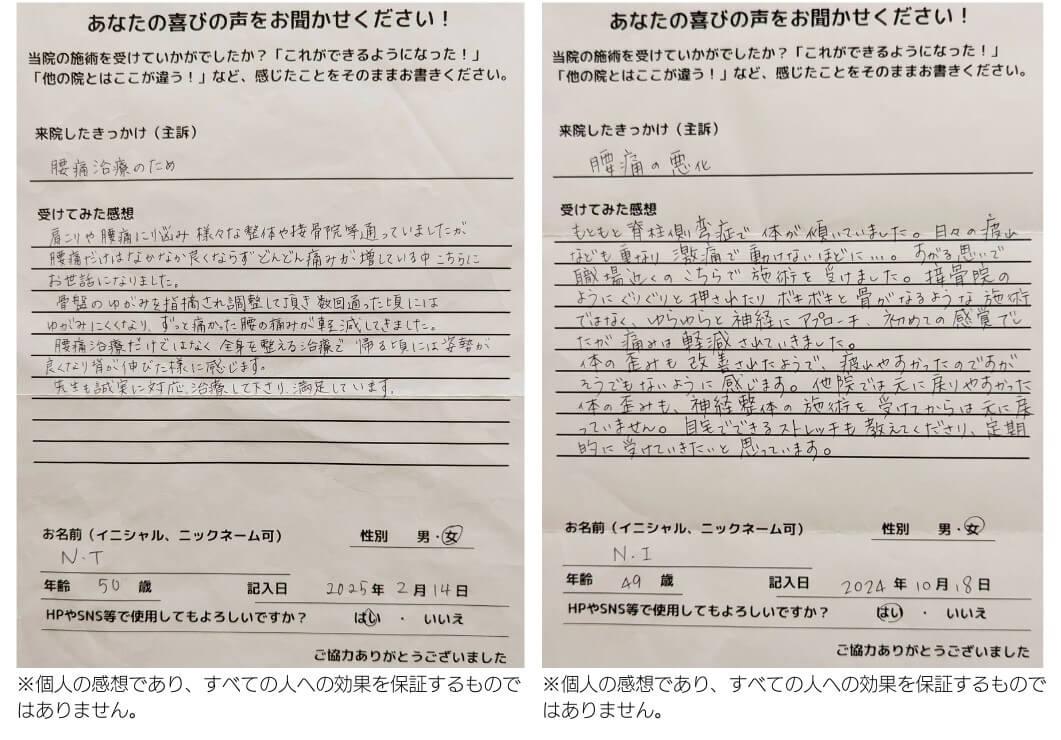 あなたの喜びの声をお聞かせください！
当院の施術を受けていかがでしたか？「これができるようになった！」
「他の院とはここが違う！」など、感じたことをそのままお書きください。
来院したきっかけ（主訴）
腰痛治療のため
受けてみた感想
肩こりや腰痛に悩み 様々な整体や接骨院等通っていましたが
腰痛だけはなかなか良くならず どんどん痛みが増している中 こちらに
お世話になりました。
骨盤のゆがみを指摘され調整して頂き 数回通った頃には
ゆがみにくくなり、ずっと痛かった腰の痛みが軽減してきました。
腰痛治療だけではなく 全身を整える治療で 帰る頃には姿勢が
良くなり背が伸びた様に感じます。
先生も誠実に対応、治療して下さり、満足しています。
お名前（イニシャル、ニックネーム可） 性別 男・女
N.T
年齢 50 歳 記入日 2025年 2月 14日
HPやSNS等で使用してもよろしいですか？ はい ・ いいえ
ご協力ありがとうございました
※個人の感想であり、すべての人への効果を保証するもので
はありません。
あなたの喜びの声をお聞かせください！
当院の施術を受けていかがでしたか？「これができるようになった！」
「他の院とはここが違う！」など、感じたことをそのままお書きください。
来院したきっかけ（主訴）
腰痛の悪化
受けてみた感想
もともと脊柱側弯症で 体が傾いていました。日々の疲れ
なども重なり 激痛で動けないほどに…。あがる思いで
職場近くのこちらで 施術を受けました。接骨院の
ようにぐりぐりと押されたり ボキボキと骨がなるような施術
ではなく、ゆらゆらと神経にアプローチ、初めての感覚でし
たが痛みは軽減されていきました。
体の歪みも改善されたようで、疲れやすかったのですが
そうでもないように感じます。他院では元に戻りやすかった
体の歪みも、神経整体の施術を受けてからは元に戻
っていません。自宅でできるストレッチも教えてくださり、定期
的に受けていきたいと思っています。
お名前（イニシャル、ニックネーム可） 性別 男・女
N.I
年齢 49 歳 記入日 2024年 10月 18日
HPやSNS等で使用してもよろしいですか？ はい ・ いいえ
ご協力ありがとうございました
※個人の感想であり、すべての人への効果を保証するもので
はありません。